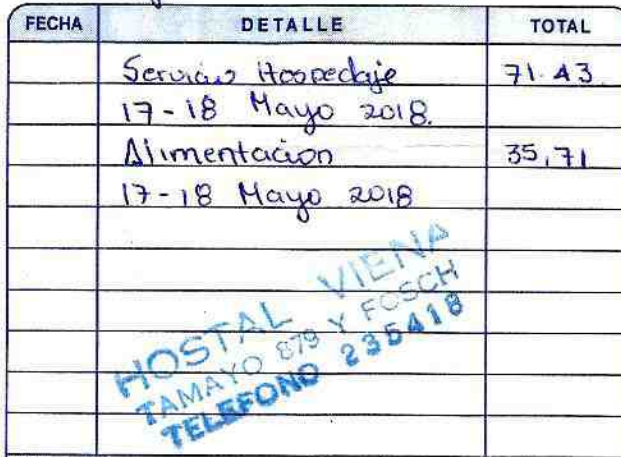 FECHA DETALLE TOTAL
Servicio Hospedaje 71.43
17-18 Mayo 2018.
Alimentacion 35,71
17-18 Mayo 2018
HOSTAL VIENA
TAMAYO 879 Y FOSCH
TELEFONO 235418